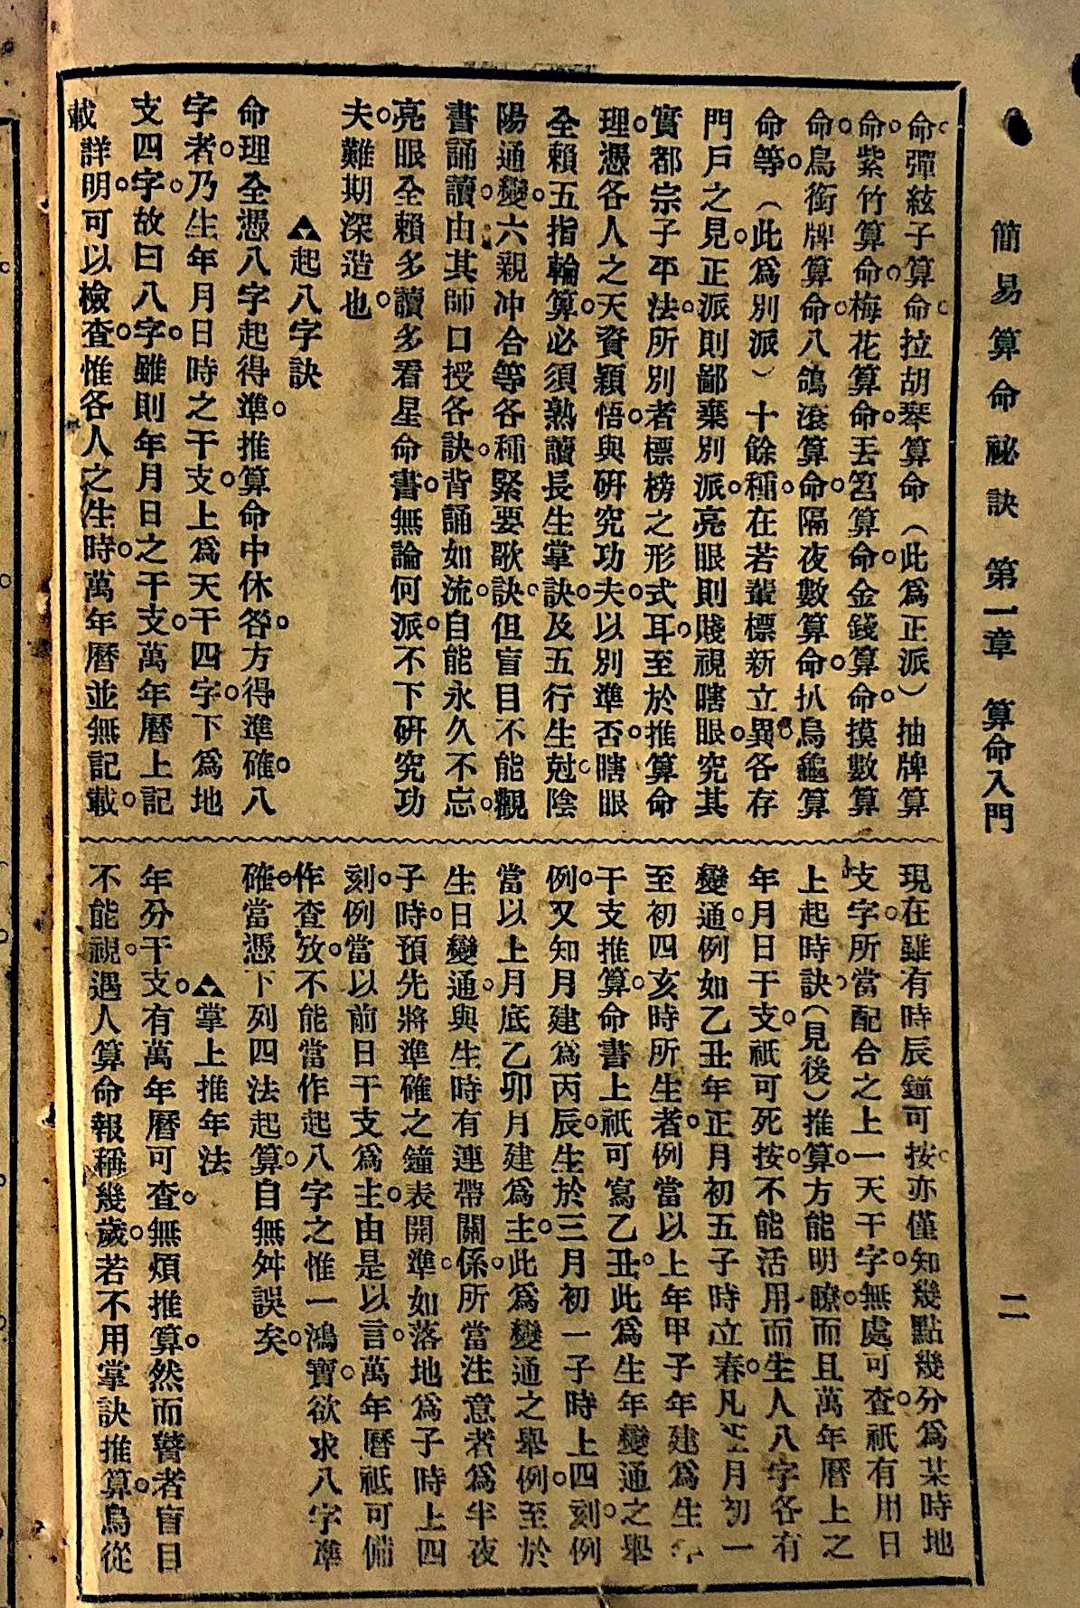 簡易算命祕訣 第一章 算命入門
二
命彈絃子算命拉胡琴算命（此爲正派）抽牌算
命紫竹算命梅花算命丟笤算命金錢算命摸數算
命鳥銜牌算命八鴿滾算命隔夜數算命扒烏龜算
命等（此爲別派）十餘種在若輩標新立異各存
門戶之見正派則鄙棄別派亮眼則賤視瞎眼究其
實都宗子平法所別者標榜之形式耳至於推算命
理憑各人之天資穎悟與研究功夫以別準否瞎眼
全賴五指輪算必須熟讀長生掌訣及五行生尅陰
陽通變六親冲合等各種緊要歌訣但盲目不能觀
書誦讀由其師口授各訣背誦如流自能永久不忘
亮眼全賴多讀多看星命書無論何派不下研究功
夫難期深造也
▲起八字訣
命理全憑八字起得準推算命中休咎方得準確八
字者乃生年月日時之干支上爲天干四字下爲地
支四字故曰八字雖則年月日之干支萬年曆上記
載詳明可以檢查惟各人之生時萬年曆並無記載
現在雖有時辰鐘可按亦僅知幾點幾分爲某時地
支字所當配合之上一天干字無處可查祇有用日
上起時訣（見後）推算方能明瞭而且萬年曆上之
年月日干支祇可死按不能活用而生人八字各有
變通例如乙丑年正月初五子時立春凡正月初一
至初四亥時所生者例當以上年甲子年建爲生年
干支推算命書上祇可寫乙丑此爲生年變通之舉
例又知月建爲丙辰生於三月初一子時上四刻例
當以上月底乙卯月建爲主此爲變通之舉例至於
生日變通與生時有連帶關係所當注意者爲半夜
子時預先將準確之鐘表開準如落地爲子時上四
刻例當以前日干支爲主由是以言萬年曆祇可備
作查攷不能當作起八字之惟一鴻寶欲求八字準
確當憑下列四法起算自無舛誤矣
▲掌上推年法
年分干支有萬年曆可查無煩推算然而瞽者盲目
不能視遇人算命報稱幾歲若不用掌訣推算烏從